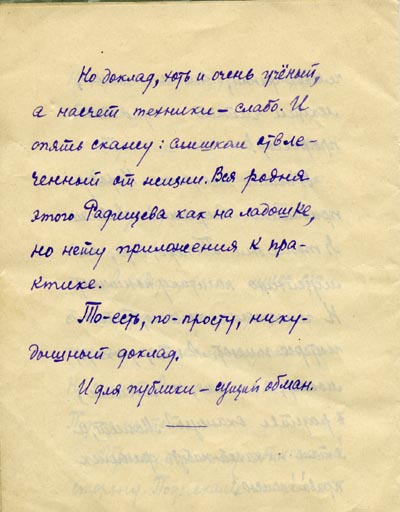 Но доклад, хоть и очень учёный,
а насчет техники – слабо. И
опять скажу: слишком отвле-
ченный от жизни. Вся родня
этого Радищева как на ладошке,
но нету приложения к пра-
ктике.
То-есть, по-просту, нику-
дышный доклад.
И для публики – сущий обман.